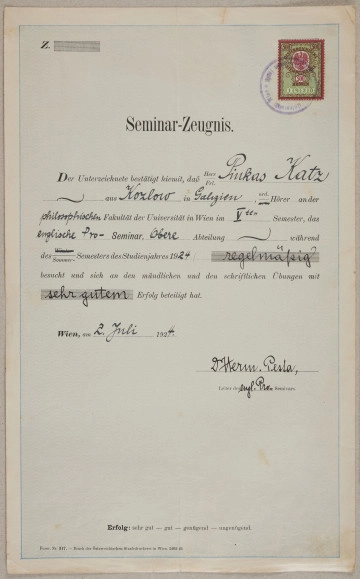 Z.
Seminar-Zeugnis.
Der Unterzeichnete bestätigt hiemit, daß Herr Frl. Pinkas Katz
aus Kozlow in Galizien, ord. Hörer an der
philosophischen Fakultät der Universität in Wien im Vten Semester, das
englische Pro- Seminar, Obere Abteilung während
des Winter- Sommer- Semesters des Studienjahres 1924 regelmäßig
besucht und sich an den mündlichen und den schriftlichen Übungen mit
sehr gutem Erfolg beteiligt hat.
Wien, am 2. Juli 1924.
Dr Herm. Pesta,
Leiter des engl. Pro- Seminars.
Erfolg: sehr gut — gut — genügend — ungenügend.